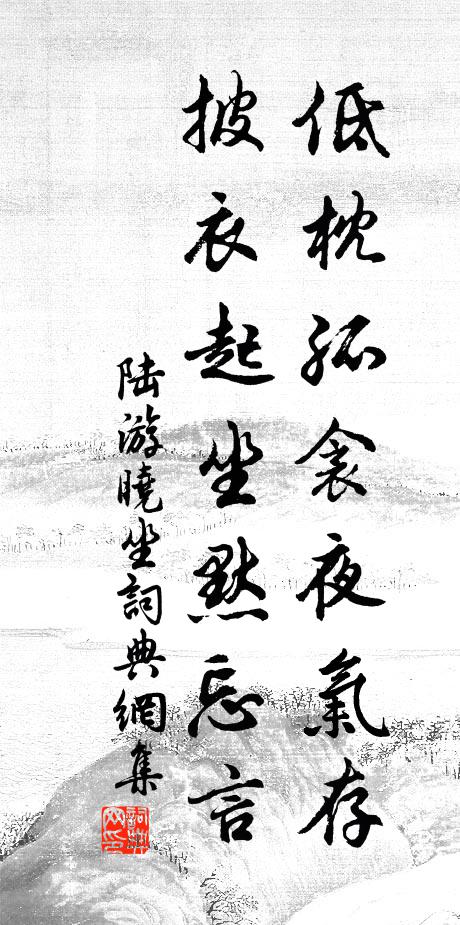 低枕孤衾夜氣存
披衣起坐默忘言
陸游曉坐詞典網集